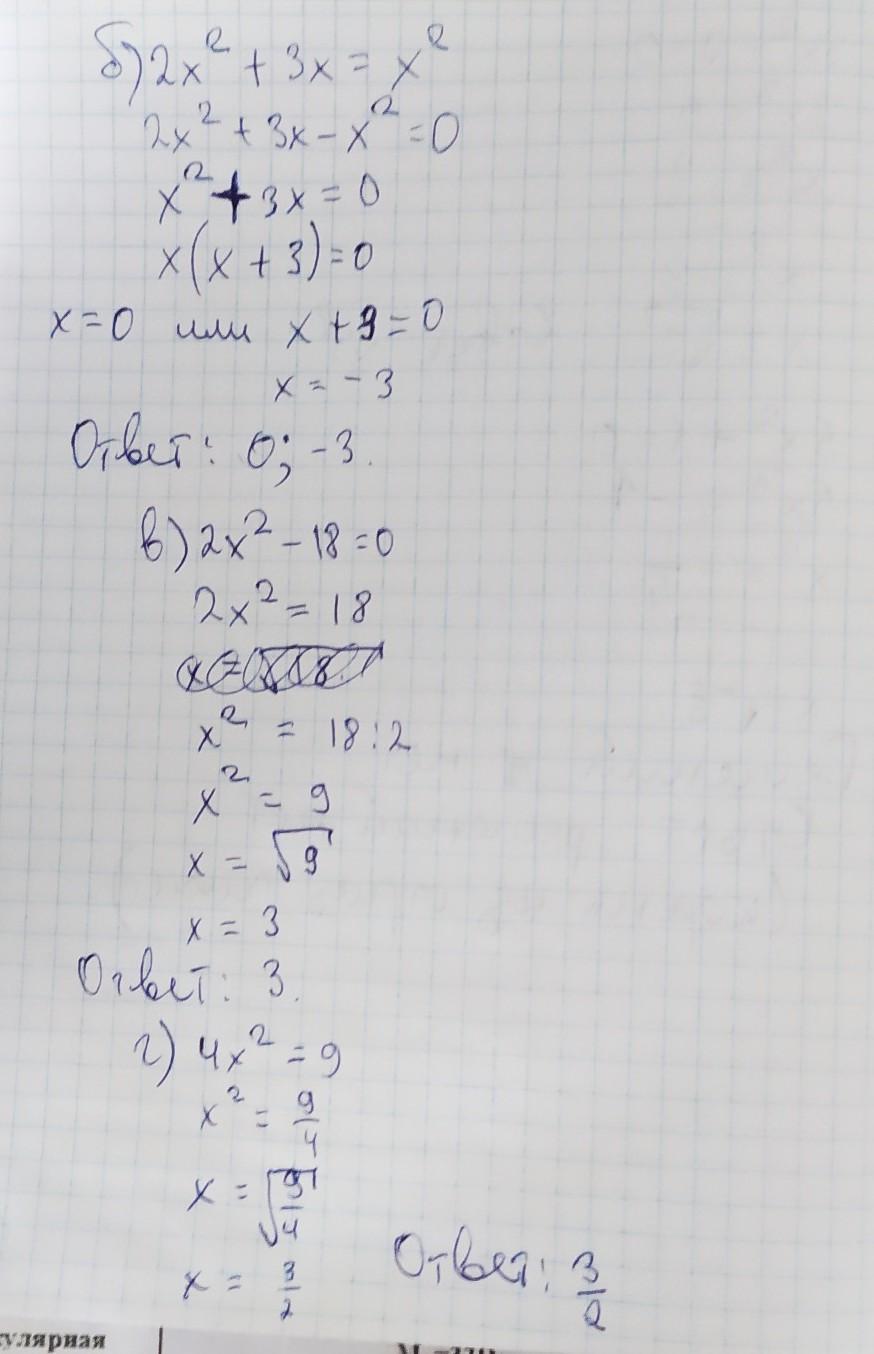 б) 2x² + 3x = x²
2x² + 3x - x² = 0
x² + 3x = 0
x(x + 3) = 0
x = 0 или x + 9 = 0
x = -3
Ответ: 0; -3.
в) 2x² - 18 = 0
2x² = 18
x² = 18 : 2
x² = 9
x = √9
x = 3
Ответ: 3.
г) 4x² = 9
x² = 9/4
x = √9/4
x = 3/2 Ответ: 3/2
кулярная